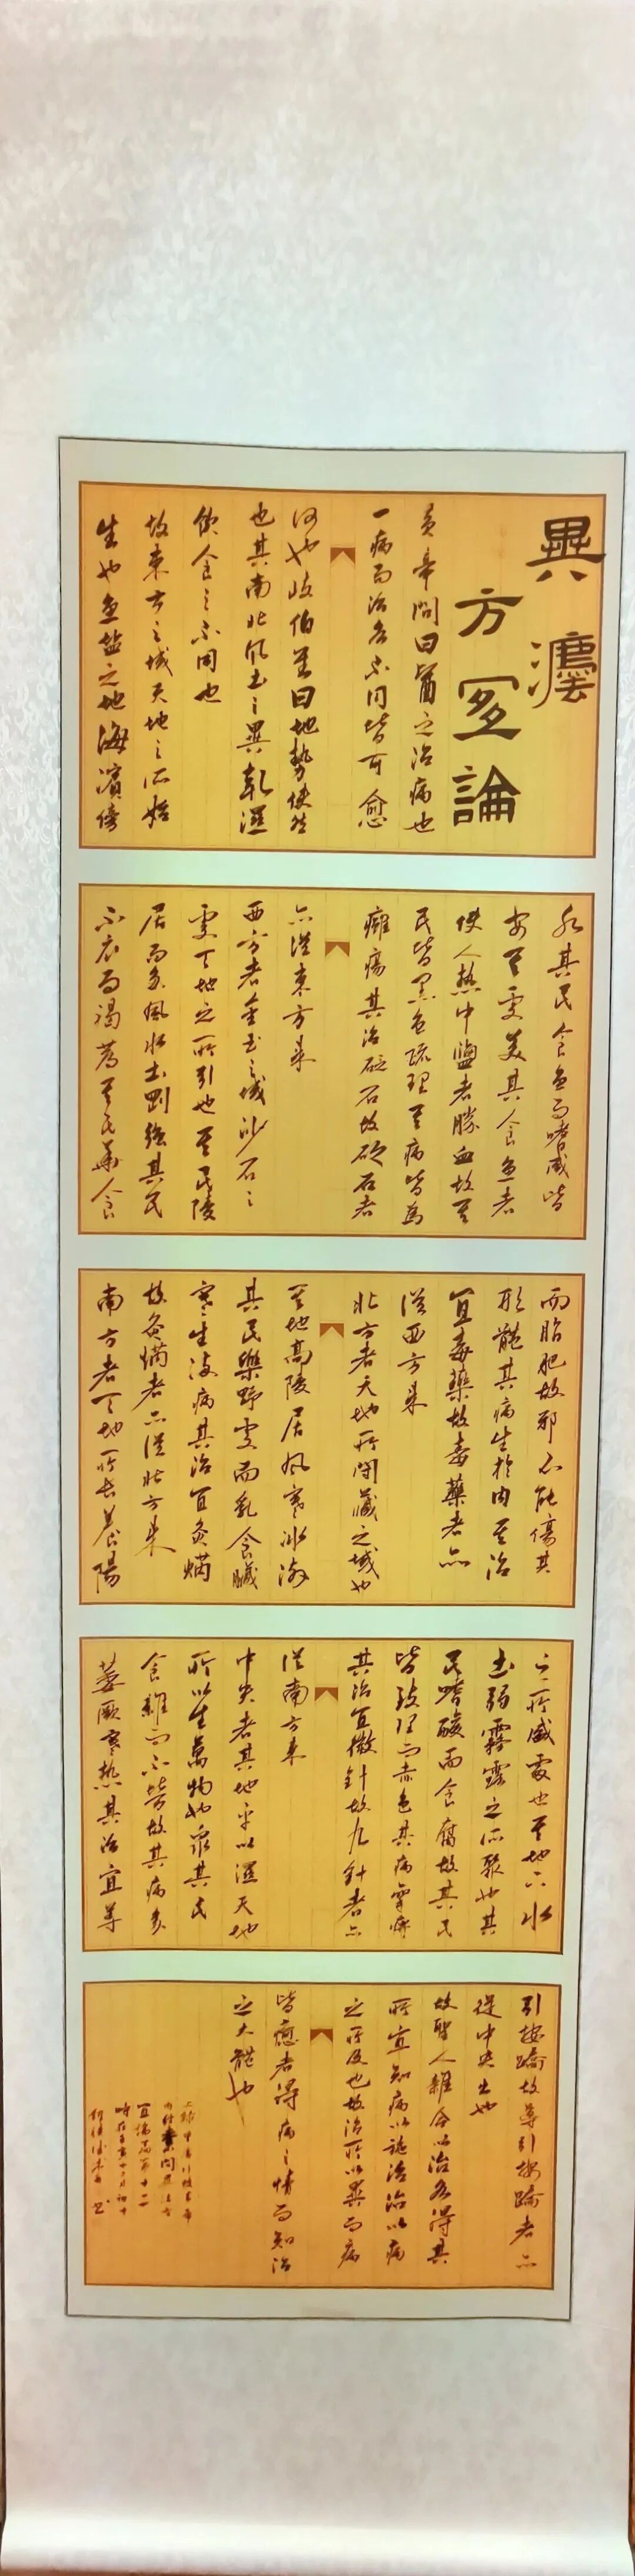 異灋
方宜論
黃帝問曰醫之治病也
一病而治各不同皆可愈
何也岐伯對曰地勢使然
也其南北風土之異乾濕
飲食之不同也
故東方之域天地之所始
生也魚盐之地海濱傍
水其民食魚而嗜咸皆
安其處美其食魚者
使人热中鹽者勝血故其
民皆黑色疏理其病皆為
癰瘍其治砭石故砭石者
亦從東方來
西方者金玉之域沙石之
處天地之所引也其民陵
居而多風水土剛強其民
不衣而褐荐其民華食
而脂肥故邪不能傷其
形體其病生於内其治
宜毒藥故毒藥者亦
從西方來
北方者天地所閉藏之域也
其地高陵居風寒冰冽
其民樂野處而乳食臟
寒生滿病其治宜灸焫
故灸焫者亦從北方來
南方者天地所長養陽
之所盛處也其地下水
土弱霧露之所聚也其
民嗜酸而食腐故其民
皆致理而赤色其病攣痹
其治宜微針故九針者亦
從南方來
中央者其地平以濕天地
所以生萬物也眾其民
食雜而不勞故其病多
萎厥寒热其治宜導
引按蹻故導引按蹻者亦
從中央出也
故聖人雜合以治各得其
所宜知病以施治治以病
之所及也故治所以異而病
皆癒者得病之情而知治
之大體也
宜論篇第十二